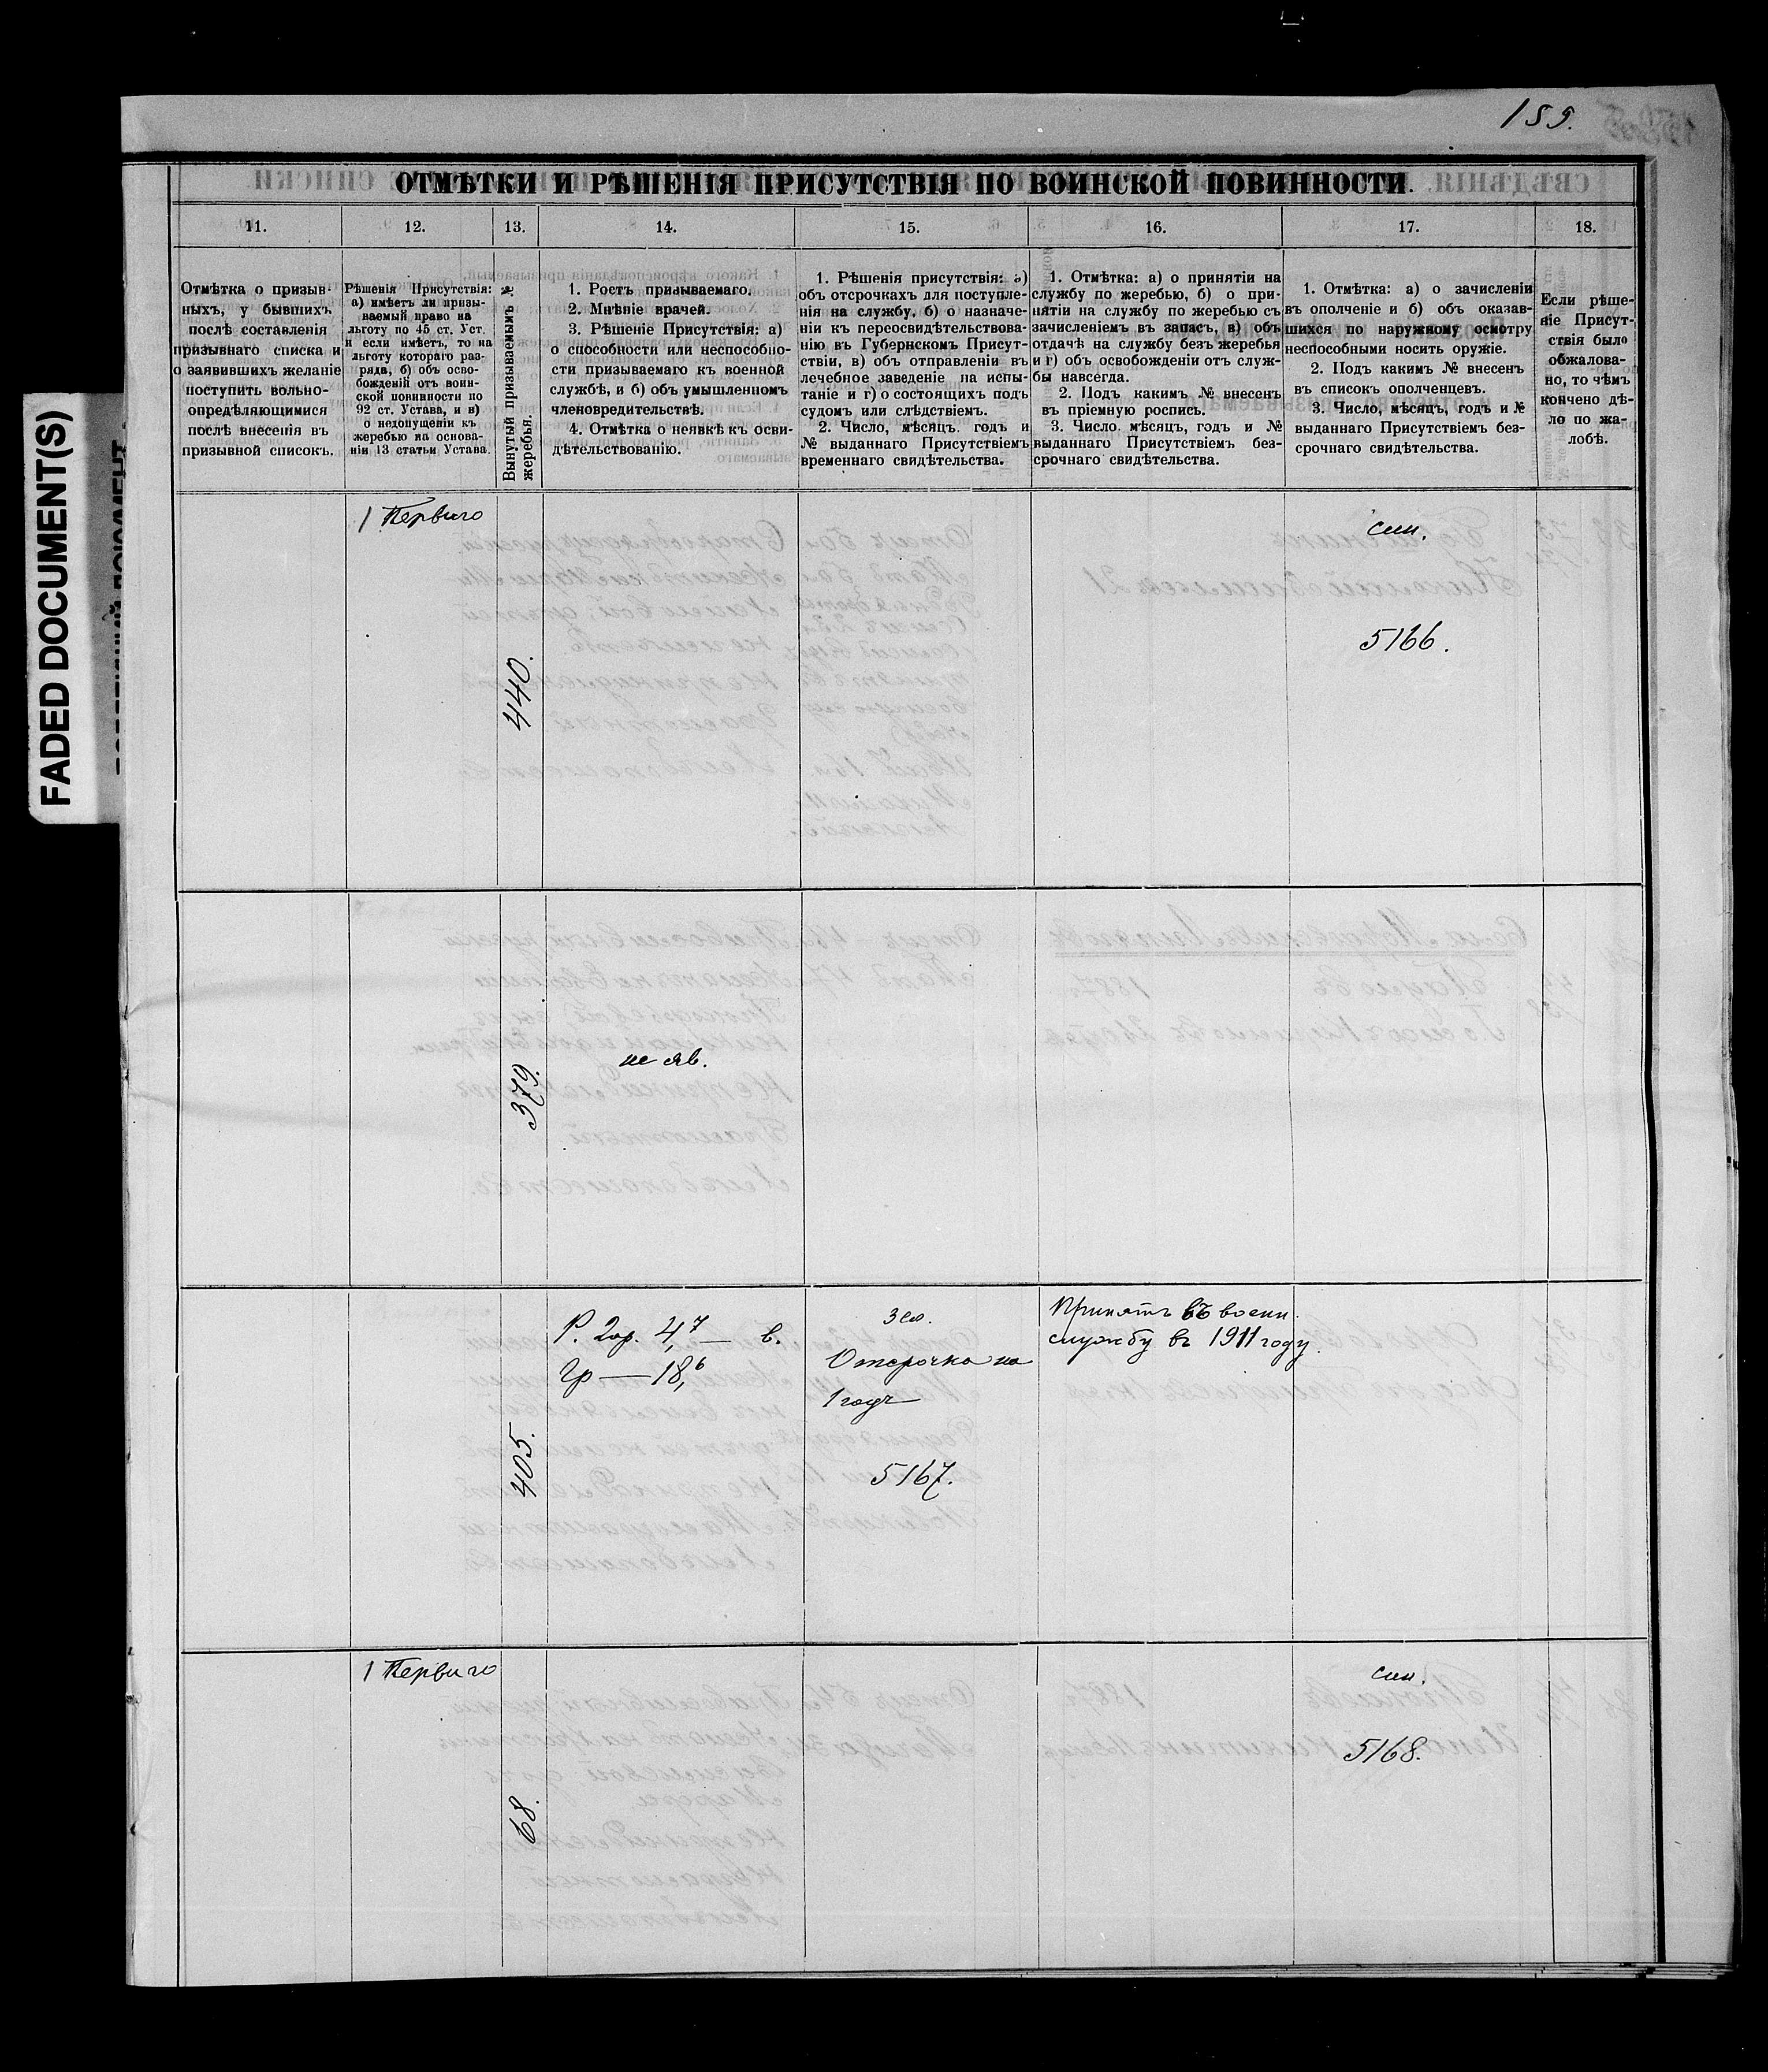 159.
FADED DOCUMENT(S)
ОТМѢТКИ И РѢШЕНІЯ ПРИСУТСТВІЯ ПО ВОИНСКОЙ ПОВИННОСТИ.
11.
12.
13.
14.
15.
16.
17.
18.
Отмѣтка о призыв-
ныхъ, у бывшихъ
послѣ составленія
призывнаго списка и
о заявившихъ желаніе
поступить вольно-
опредѣляющимися
послѣ внесенія въ
призывной списокъ.
Рѣшенія Присутствія:
а) имѣетъ ли призы-
ваемый право на
льготу по 45 ст. Уст.
и если имѣетъ, то на
льготу котораго раз-
ряда, б) объ осво-
божденіи отъ воин-
ской повинности по
92 ст. Устава, и в)
о недопущеніи къ
жеребью на основа-
ніи 13 статьи Устава.
Вынутый призываемымъ №
жеребья.
1. Ростъ призываемаго.
2. Мнѣніе врачей.
3. Рѣшеніе Присутствія: а)
о способности или неспособно-
сти призываемаго къ военной
службѣ, и б) объ умышленномъ
членовредительствѣ.
4. Отмѣтка о неявкѣ къ осви-
дѣтельствованію.
1. Рѣшенія присутствія: а)
объ отсрочкахъ для поступле-
нія на службу, б) о назначе-
ніи къ переосвидѣтельствова-
нію въ Губернскомъ Присут-
ствіи, в) объ отправленіи въ
лечебное заведеніе на испы-
таніе и г) о состоящихъ подъ
судомъ или слѣдствіемъ.
2. Число, мѣсяцъ. годъ и
№ выданнаго Присутствіемъ
временнаго свидѣтельства.
1. Отмѣтка: а) о принятіи на
службу по жеребью, б) о при-
нятіи на службу по жеребью съ
зачисленіемъ въ запасъ, в) объ
отдачѣ на службу безъ жеребья
и г) объ освобожденіи отъ служ-
бы навсегда.
2. Подъ какимъ № внесенъ
въ пріемную роспись.
3. Число. мѣсяцъ, годъ и №
выданнаго Присутствіемъ без-
срочнаго свидѣтельства.
1. Отмѣтка: а) о зачисленіи
въ ополченіе и б) объ оказав-
шихся по наружному осмотру
неспособными носить оружіе.
2. Подъ какимъ № внесенъ
въ списокъ ополченцевъ.
3. Число, мѣсяцъ, годъ и №
выданнаго Присутствіемъ без-
срочнаго свидѣтельства.
Если рѣше-
ніе Присут-
ствія было
обжалова-
но, то чѣмъ
кончено дѣ-
ло по жа-
лобѣ.
1 Перваго
440.
5166.
379.
не яв.
405.
Р. 2ар. 4,7 — в.
Гр — 18,6
Отсрочка на
1 годъ
5167.
Принятъ въ военн.
службу въ 1911 году.
1 Перваго
68.
5168.